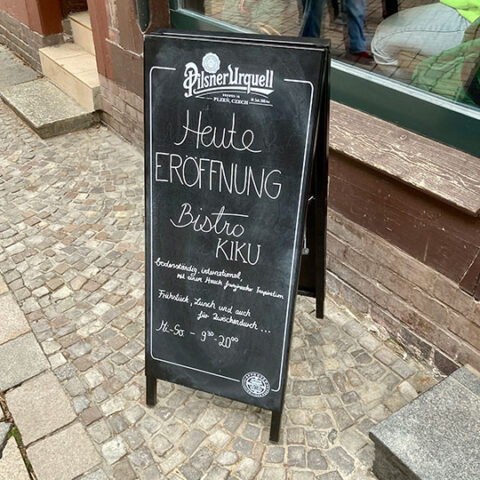 Pilsner Urquell
PLZEŇ, CZECH
Heute
ERÖFFNUNG
Bistro
KIKU
bodenständig, international,
mit einem Hauch französischer Inspiration
Frühstück, Lunch und auch
für Zwischendurch ...
Mi.-So. - 9³⁰-20⁰⁰